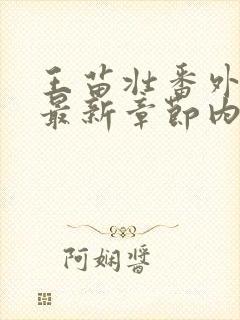 王苗壮番外
最新章节内
阿娴酱